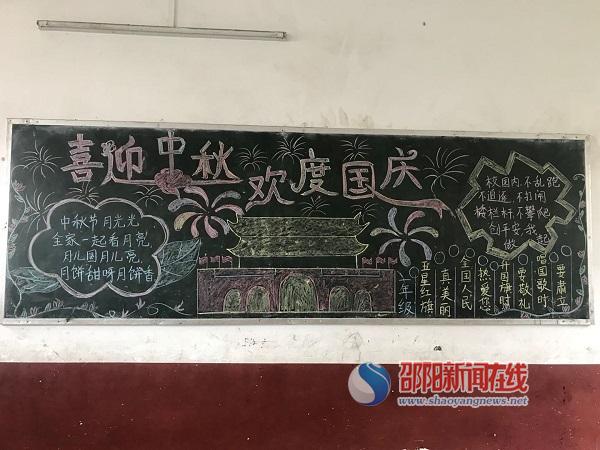 喜迎中秋
欢度国庆
中秋节月光光
全家一起看月亮
月儿圆月儿亮
月饼甜呀月饼香
校园内,不乱跑
不追逐,不打闹
栏杆,不攀爬
创平安,我
做起
一年级
五星红旗
真美丽
全国人民
热爱您
升国旗时
要敬礼
唱国歌时
要肃立
邵阳新闻在线
www.shaoyangnews.net